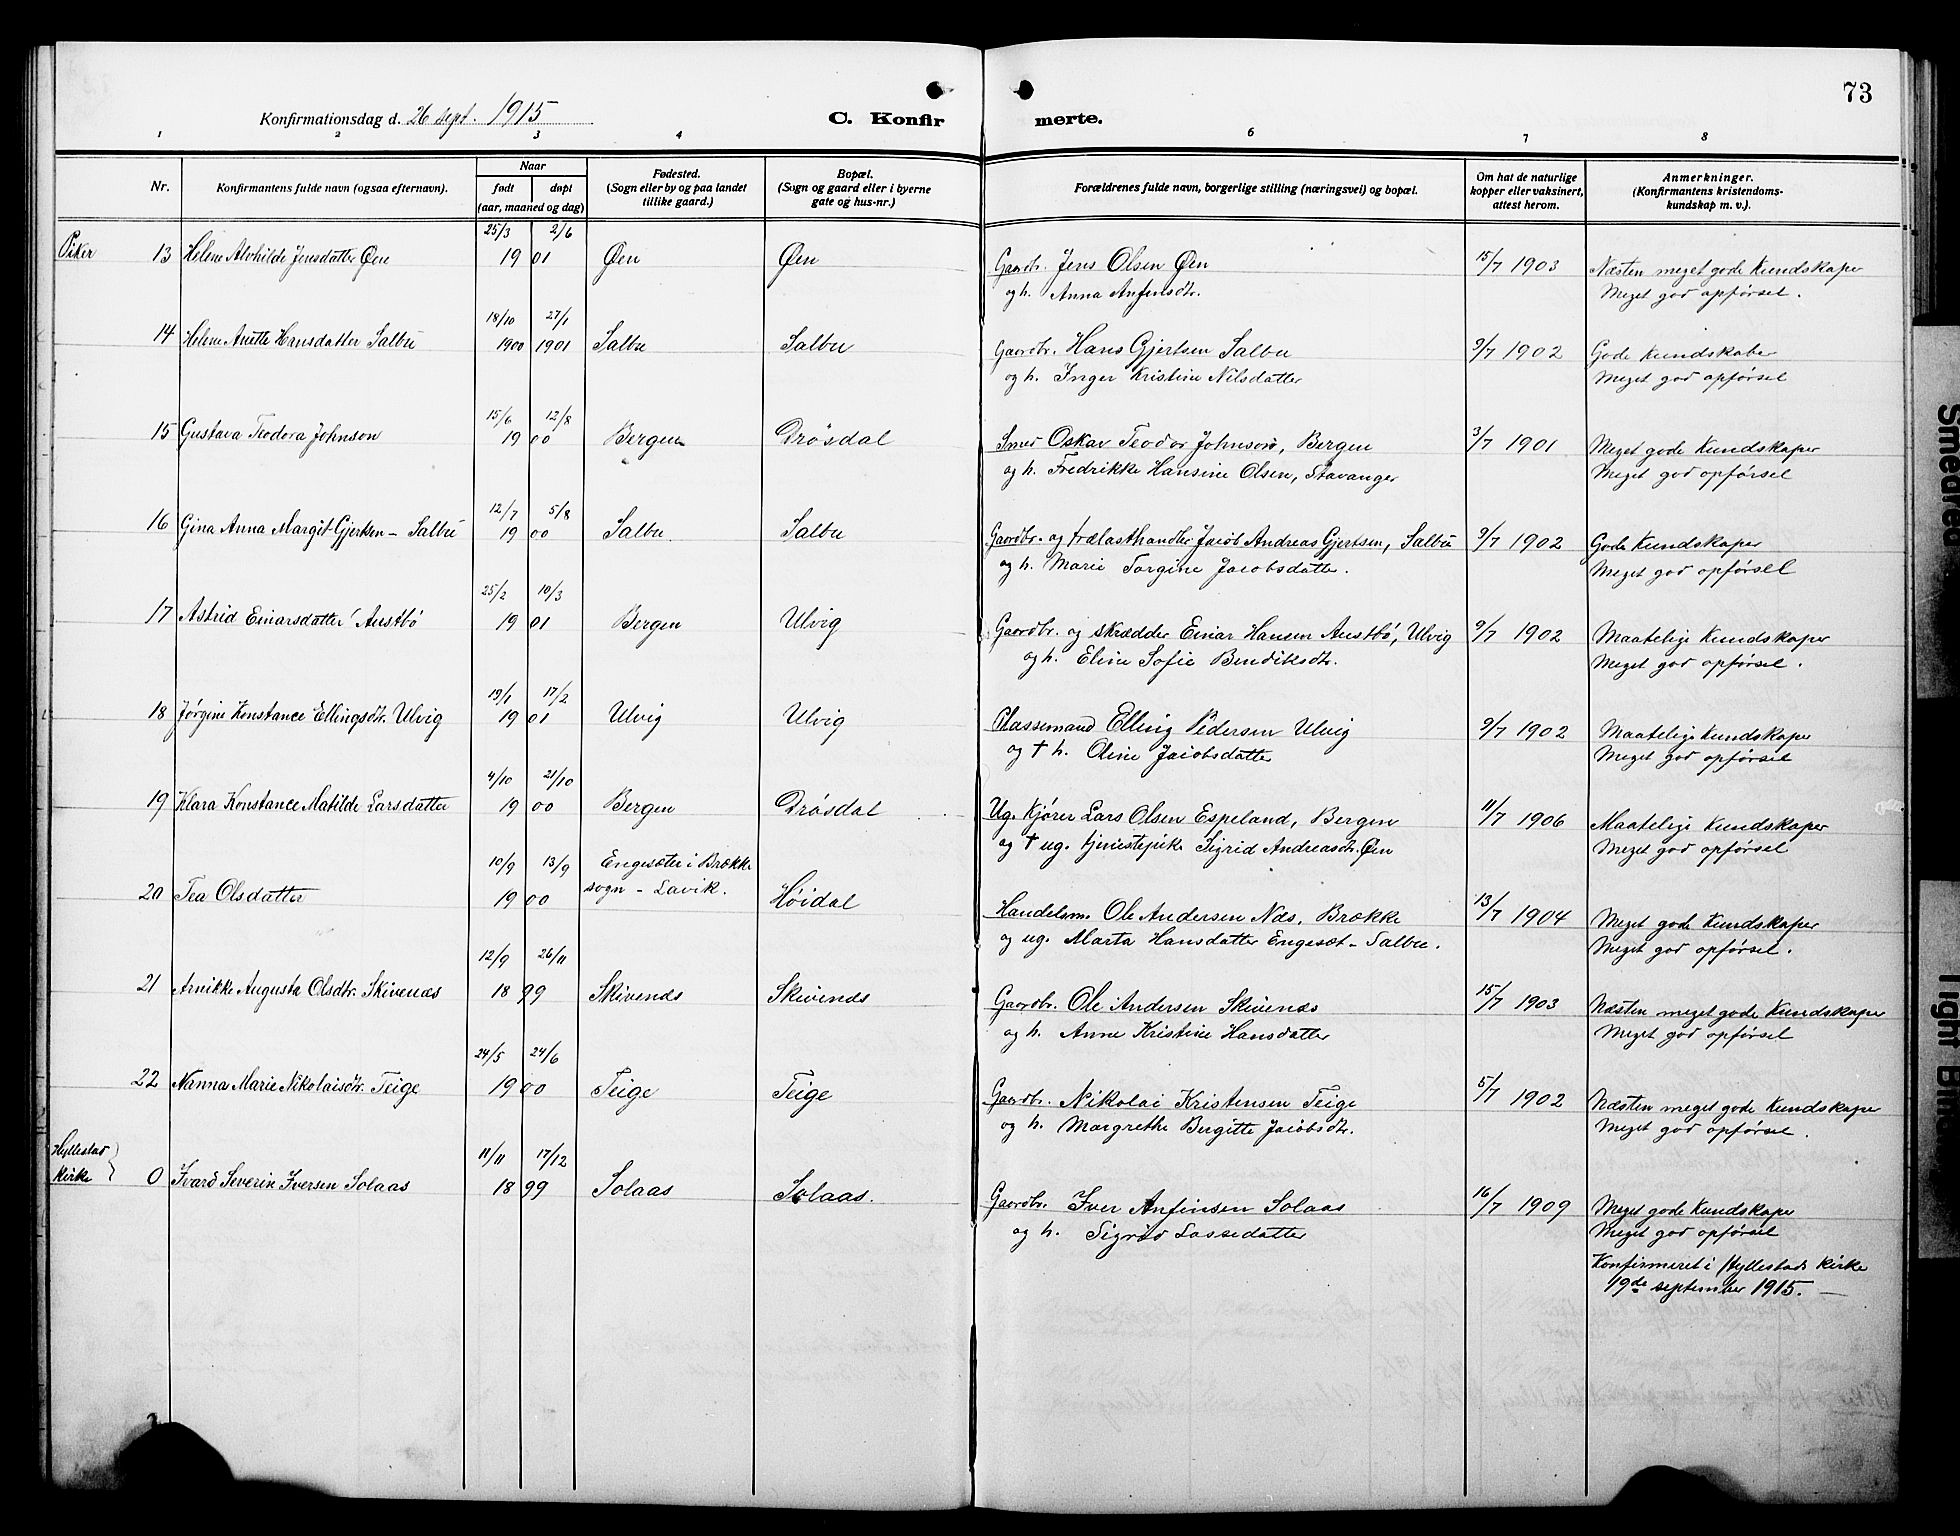 73
Konfirmationsdag d. 26 sept. 1915
C. Konfirmerte.
1 2 3 4 6 7 8
Nr.
Konfirmantens fulde navn (ogsaa efternavn).
Naar
født døpt
(aar, maaned og dag)
Fødested.
(Sogn eller by og paa landet
tillike gaard.)
Bopæl.
(Sogn og gaard eller i byerne
gate og hus-nr.)
Forældrenes fulde navn, borgerlige stilling (næringsvei) og bopæl.
Om hat de naturlige
kopper eller vaksinert,
attest herom.
Anmerkninger.
(Konfirmantens kristendoms-
kundskap m. v.).
25/3 2/6
Piker 13 Helene Alvhilde Jensdatter Øen 19 01 Øen Øen Gaardbr. Jens Olsen Øen 15/7 1903 Næsten meget gode Kundskaper
og h. Anna Anfinsdtr. Meget god opførsel.
18/10 27/1
14 Helene Anette Hansdatter Salbu 1900 1901 Salbu Salbu Gaardbr. Hans Gjertsen Salbu 9/7 1902 Gode Kundskaber
og h. Inger Kristine Nilsdatter Meget god opførsel
15/6 12/8
15 Gustava Teodora Johnson 19 00 Bergen Drøsdal Smed Oskar Teodor Johnson, Bergen 3/7 1901 Meget gode Kundskaper
og h. Fredrikke Hansine Olsen, Stavanger Meget god opførsel
12/7 5/8
16 Gina Anna Margit Gjertsen - Salbu 19 00 Salbu Salbu Gaardbr. og trælasthandler Jacob Andreas Gjertsen, Salbu 9/7 1902 Gode Kundskaper
og h. Marie Torgine Jacobsdatter. Meget god opførsel
25/2 10/3
17 Astrid Einarsdatter Austbø 19 01 Bergen Ulvig Gaardbr. og skrædder Einar Hansen Austbø, Ulvig 9/7 1902 Maatelige Kundskaper
og h. Eline Sofie Bendiksdtr. Meget god opførsel.
19/1 17/2
18 Jørgine Konstance Ellingsdtr. Ulvig 19 01 Ulvig Ulvig Plassemand Elling Pedersen Ulvig 9/7 1902 Maatelige Kundskaper
og † h. Oline Jacobsdatter Meget god opførsel
4/10 21/10
19 Klara Konstance Matilde Larsdatter 19 00 Bergen Drøsdal Ug. Kjører Lars Olsen Espeland, Bergen 11/7 1906 Maatelige Kundskaper
og † ug. tjenestepike Sigrid Andreasdtr. Øen Meget god opførsel
10/9 13/9 Engesæter i Brække
sogn - Lavik.
20 Tea Olsdatter 19 00 Høidal Handelsm. Ole Andersen Næs, Brække 13/7 1904 Meget gode Kundskaper
og ug. Marta Hansdatter Engesæt - Salbu. Meget god opførsel.
12/9 26/11
21 Arnikke Augusta Olsdtr. Skivenæs 18 99 Skivenæs Skivenæs Gaardbr. Ole Andersen Skivenæs 15/7 1903 Næsten meget gode Kundskaper
og h. Anne Kristine Hansdatter Meget god opførsel
24/5 24/6
22 Nanna Marie Nikolaisdtr. Teige 19 00 Teige Teige Gaardbr. Nikolai Kristensen Teige 5/7 1902 Næsten meget gode Kundskaper
og h. Margrethe Bergitte Jacobsdtr. Meget god opførsel.
11/11 17/12
Hyllestad
Kirke 0 Ivard Severin Iversen Solaas 18 99 Solaas Solaas. Gaardbr. Iver Anfinsen Solaas 16/7 1909 Meget gode Kundskaper
og h. Sigrid Lassedatter Meget god opførsel
Konfirmeret i Hyllestad Kirke
19de september 1915. -